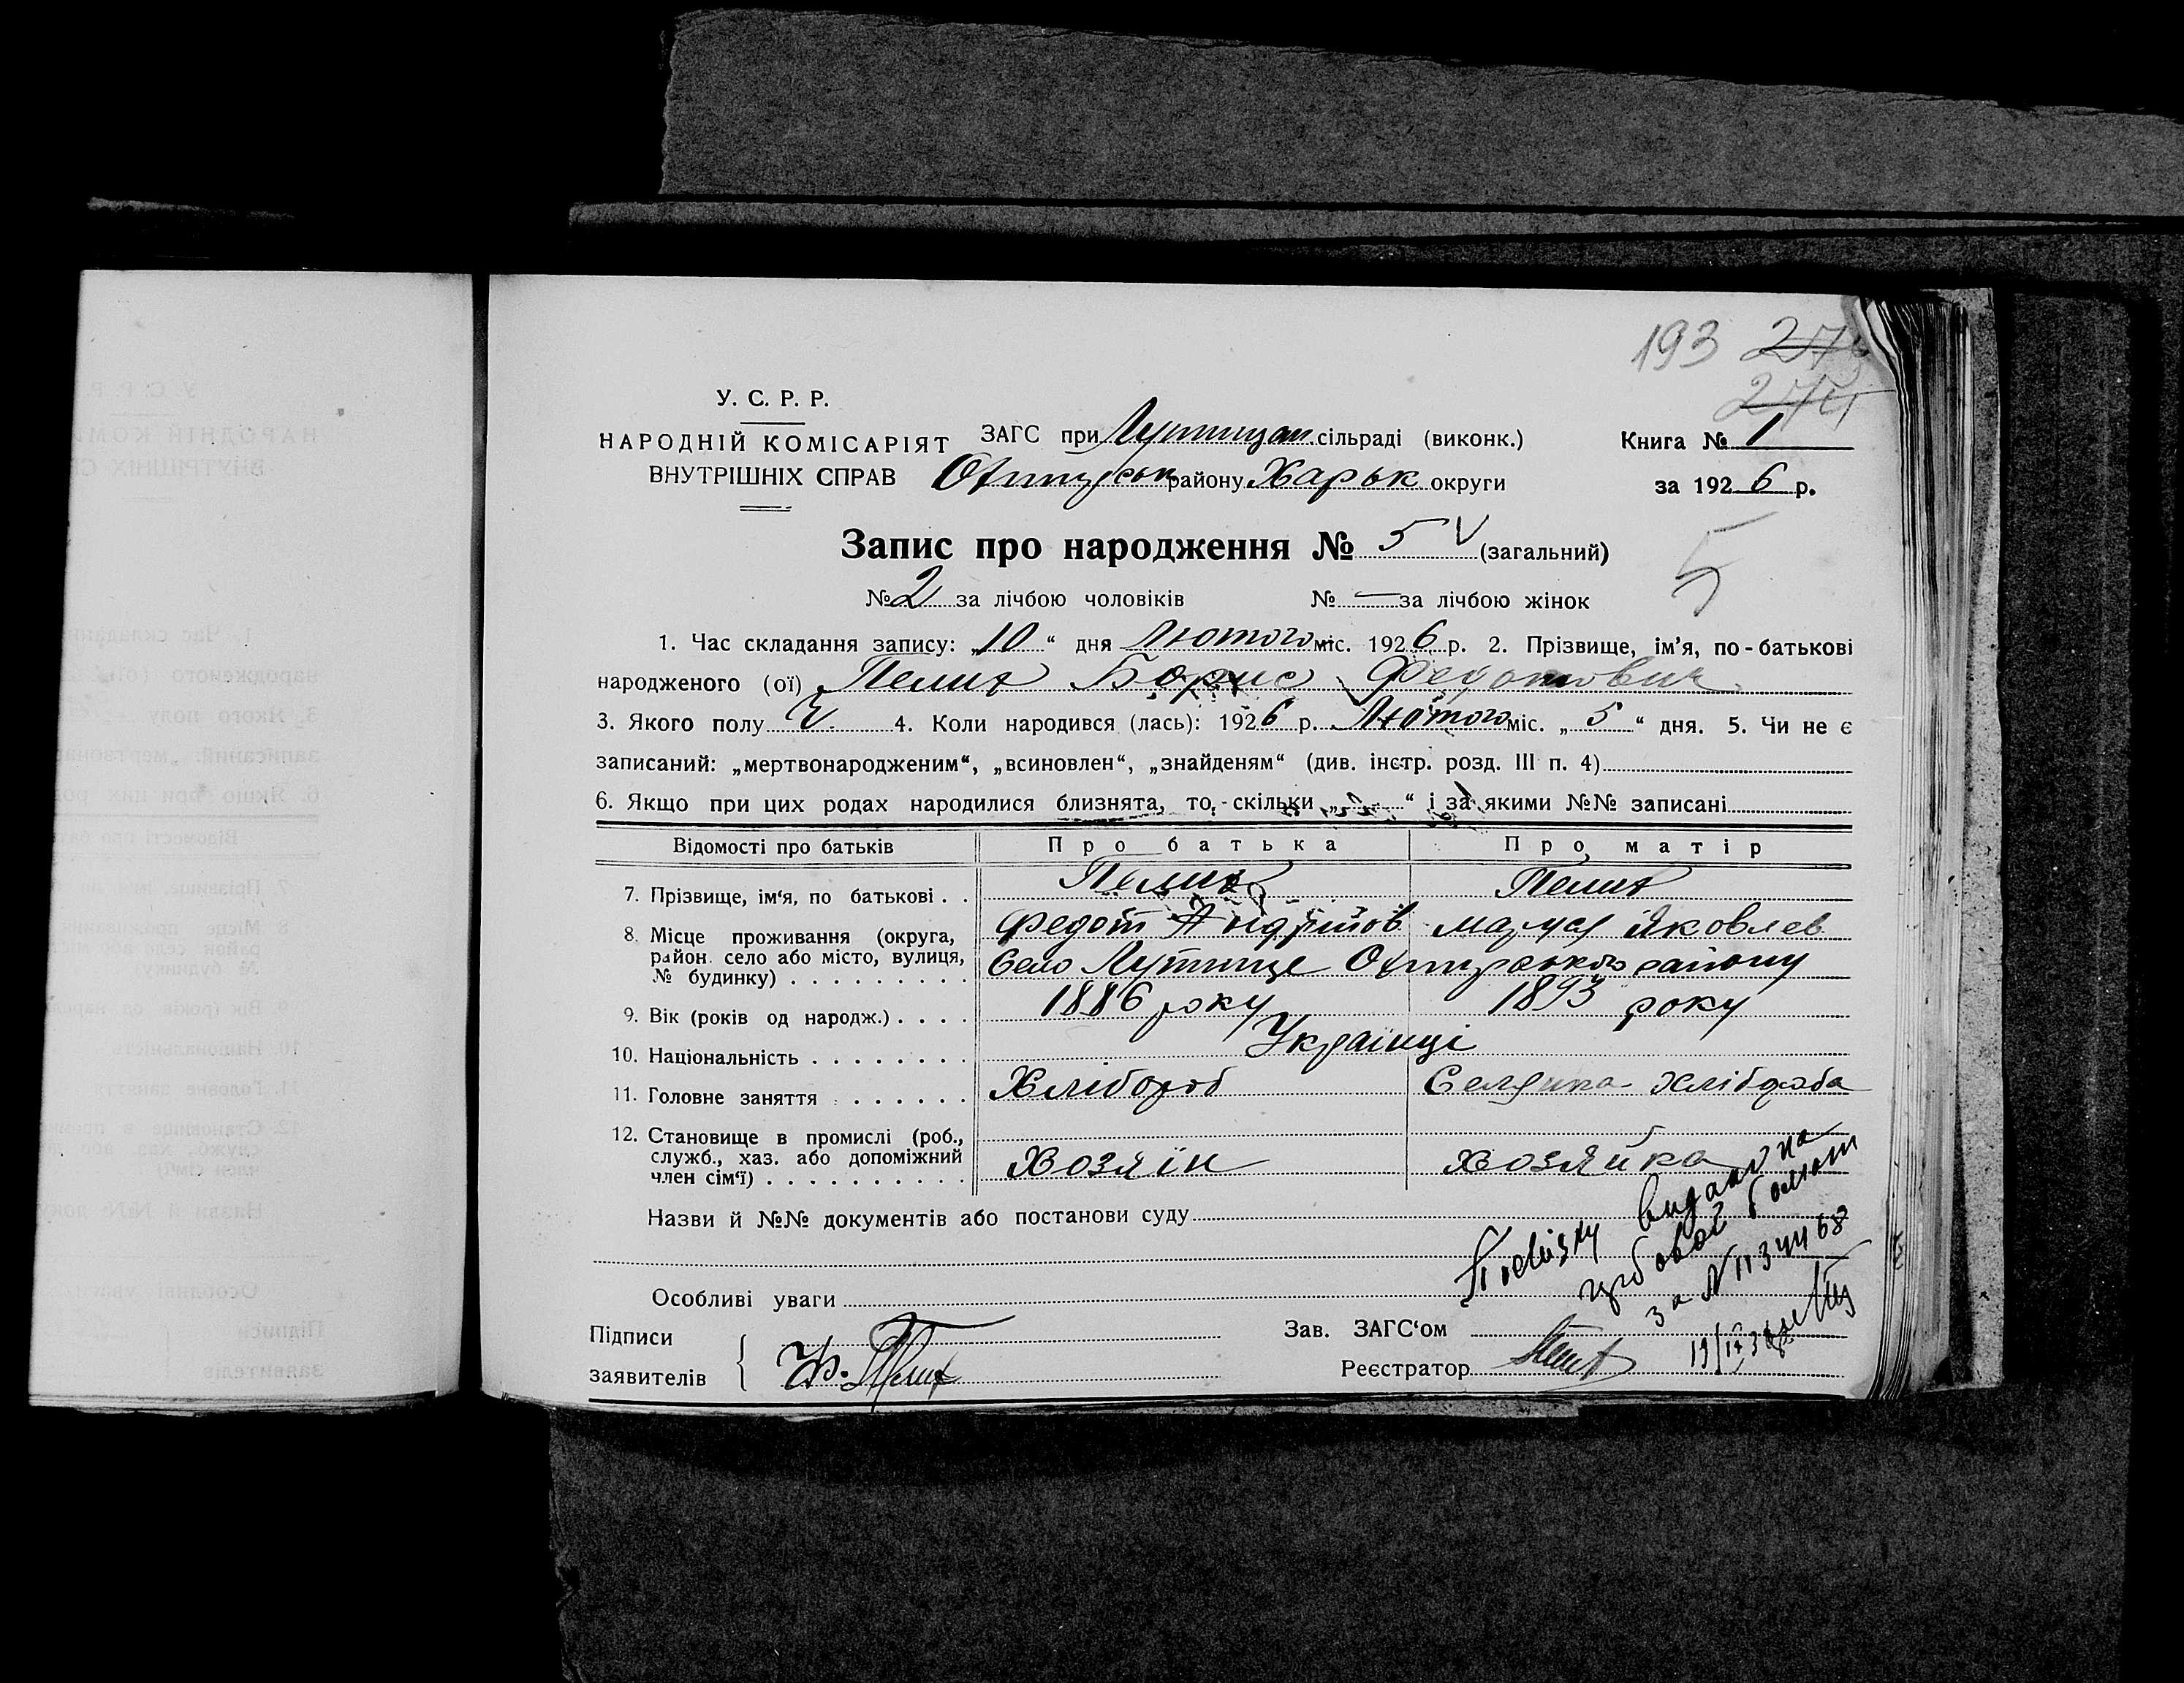 193 276
274
У. С. Р. Р.
НАРОДНІЙ КОМІСАРІЯТ
ВНУТРІШНІХ СПРАВ
ЗАГС при Лутищан сільраді (виконк.)
Охтирськ району Харьк округи
Книга № 1
за 1926 р.
Запис про народження № 5 V (загальний)
5
№ 2 за лічбою чоловіків № — за лічбою жінок
1. Час складання запису: „10“ дня Лютого міс. 1926 р. 2. Прізвище, ім’я, по-батькові
народженого (ої) Пелих Борис Федотович
3. Якого полу Ч. 4. Коли народився (лась): 1926 р. Лютого міс. „5“ дня. 5. Чи не є
записаний: „мертвонародженим“, „всиновлен“, „знайденям“ (див. інстр. розд. III п. 4)
6. Якщо при цих родах народилися близнята, то, - скільки „ “ і за якими №№ записані
Відомості про батьків Про батька Про матір
7. Прізвище, ім‘я, по батькові . . Пелих Пелих
Федот Андріїов Яковлев
8. Місце проживання (округа,
район. село або місто, вулиця,
№ будинку) . . . . . . . . . Село Лутище Охтирського району
9. Вік (років од народж.) . . . . 1886 року 1893 року
10. Національність . . . . . . . . Українці
11. Головне заняття . . . . . . . Хлібороб Селянка хлібороба
12. Становище в промислі (роб.,
служб., хаз. або допоміжний
член сім‘ї) . . . . . . . . . . Хозяїн Хозяйка
Назви й №№ документів або постанови суду
Особливі уваги
видано на
за № 1134468
Підписи
заявителів
Ф. Пелих
Зав. ЗАГС‘ом
Реєстратор